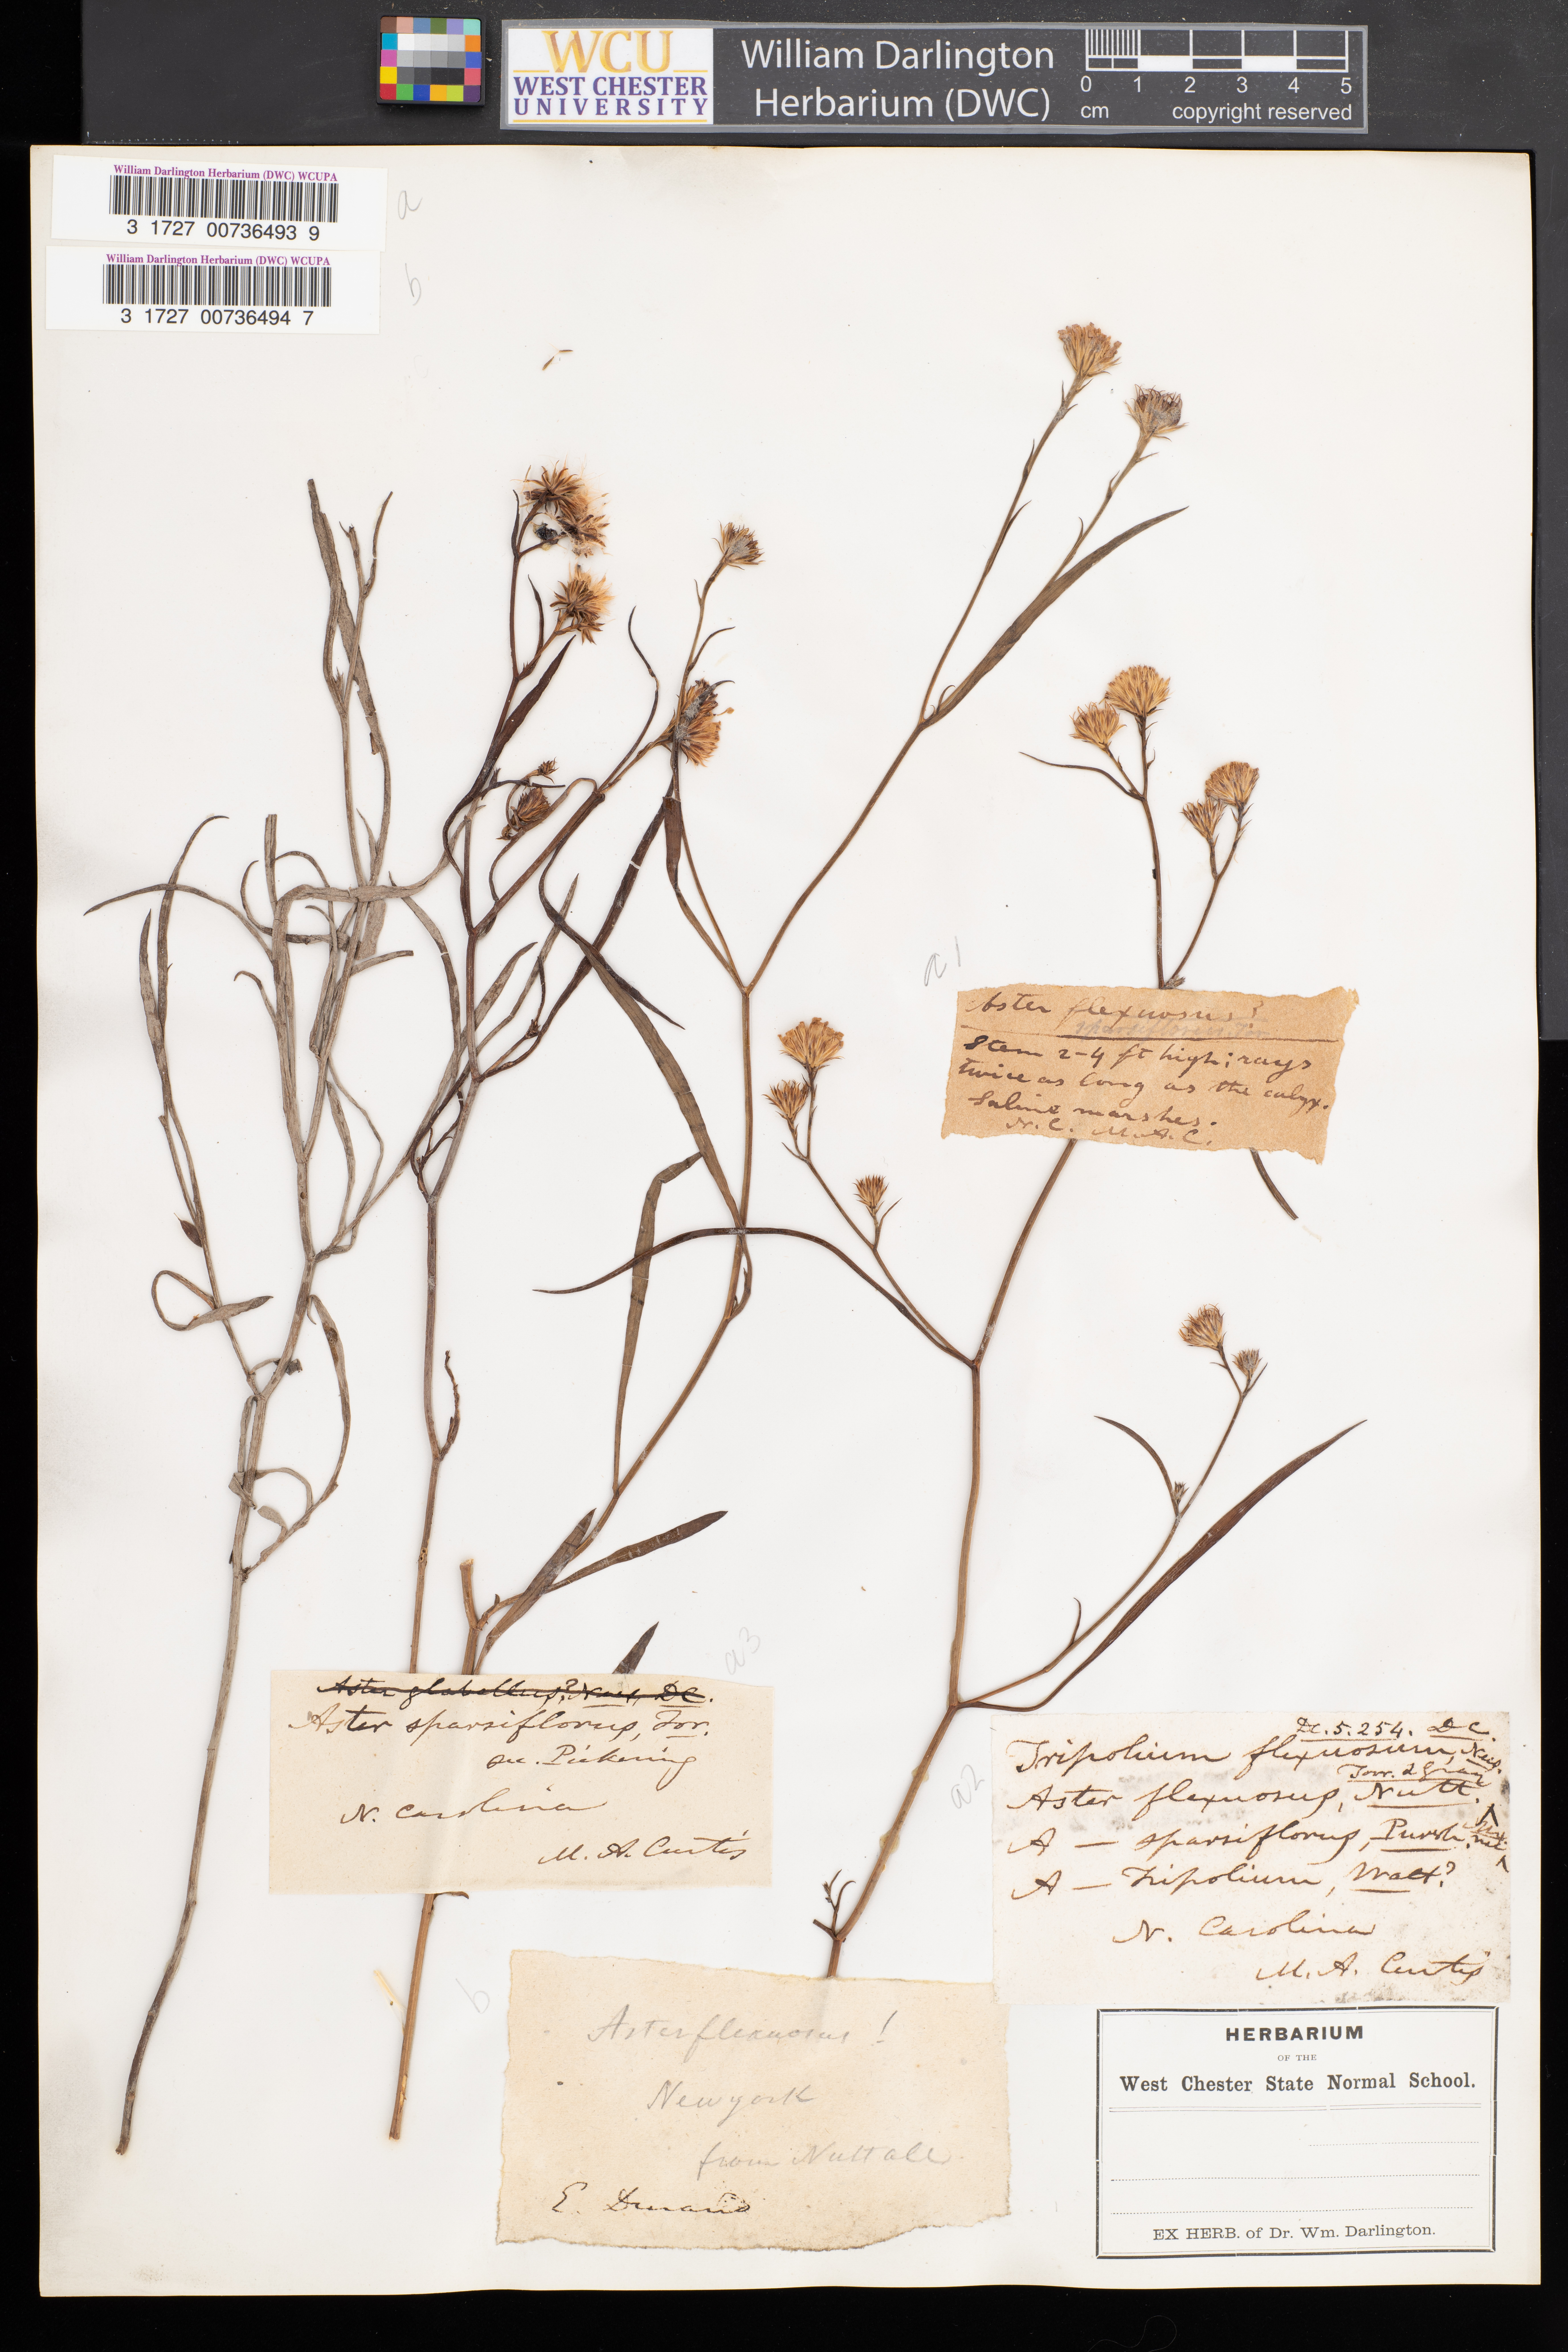 WCU
WEST CHESTER
UNIVERSITY
William Darlington
Herbarium (DWC)
0 1 2 3 4 5
cm copyright reserved
William Darlington Herbarium (DWC) WCUPA
3 1727 00736493 9
a
William Darlington Herbarium (DWC) WCUPA
3 1727 00736494 7
b
a1
Aster flexuosus?
sparsiflorus
Stem 2-4 ft high; rays
twice as long as the calyx.
Saline marshes.
N.C. M.A.C.
a3
Aster glabellus? Nees, DC.
Aster sparsiflorus, Tor.
sec. Pickering
N. Carolina
M. A. Curtis
a2
DC. 5. 254. DC.
Tripolium flexuosum, Nees.
Torr. & Gray
Aster flexuosus, Nutt.
A — sparsiflorus, Pursh.
A — Tripolium, Walt?
N. Carolina
M. A. Curtis
b
Aster flexuosus!
Newyork
from Nuttall
E. Durand
HERBARIUM
OF THE
West Chester State Normal School.
EX HERB. of Dr. Wm. Darlington.